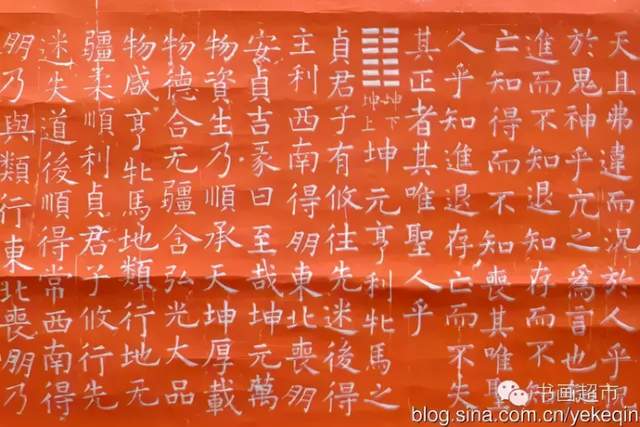 天且弗違而況於人乎況
於鬼神乎亢之爲言也
進而不知退知存而不知
亡知得而不知喪其唯聖
人乎知進退存亡而不失
其正者其唯聖人乎
坤下
坤上
坤元亨利牝馬之
貞君子有攸往先迷後得
主利西南得朋東北喪朋
安貞吉彖曰至哉坤元萬
物資生乃順承天坤厚載
物德合无疆含弘光大品
物咸亨牝馬地類行地无
疆柔順利貞君子攸行先
迷失道後順得常西南得
朋乃與類行東北喪朋乃
书画超市
blog.sina.com.cn/yekeqin